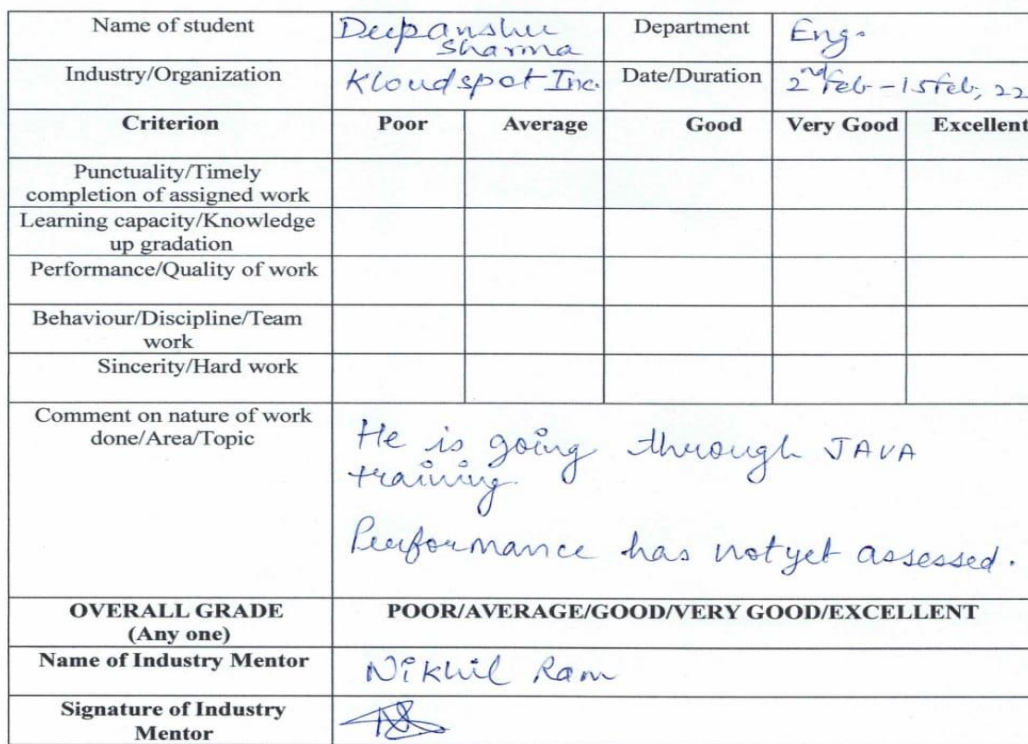 Name of student Deepanshu Sharma Department Eng.
Industry/Organization Kloudspot Inc. Date/Duration 2nd Feb - 15 Feb, 22
Criterion Poor Average Good Very Good Excellent
Punctuality/Timely
completion of assigned work
Learning capacity/Knowledge
up gradation
Performance/Quality of work
Behaviour/Discipline/Team
work
Sincerity/Hard work
Comment on nature of work
done/Area/Topic
He is going through JAVA
training.
Performance has not yet assessed.
OVERALL GRADE
(Any one)
POOR/AVERAGE/GOOD/VERY GOOD/EXCELLENT
Name of Industry Mentor Nikhil Ram
Signature of Industry
Mentor